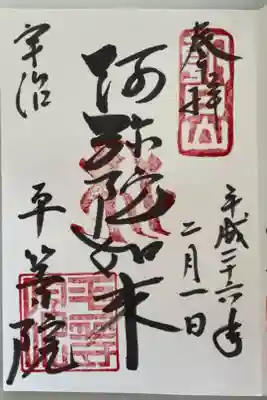 奉拝
平成二十六年
二月一日
阿弥陀如来
宇治
平等院